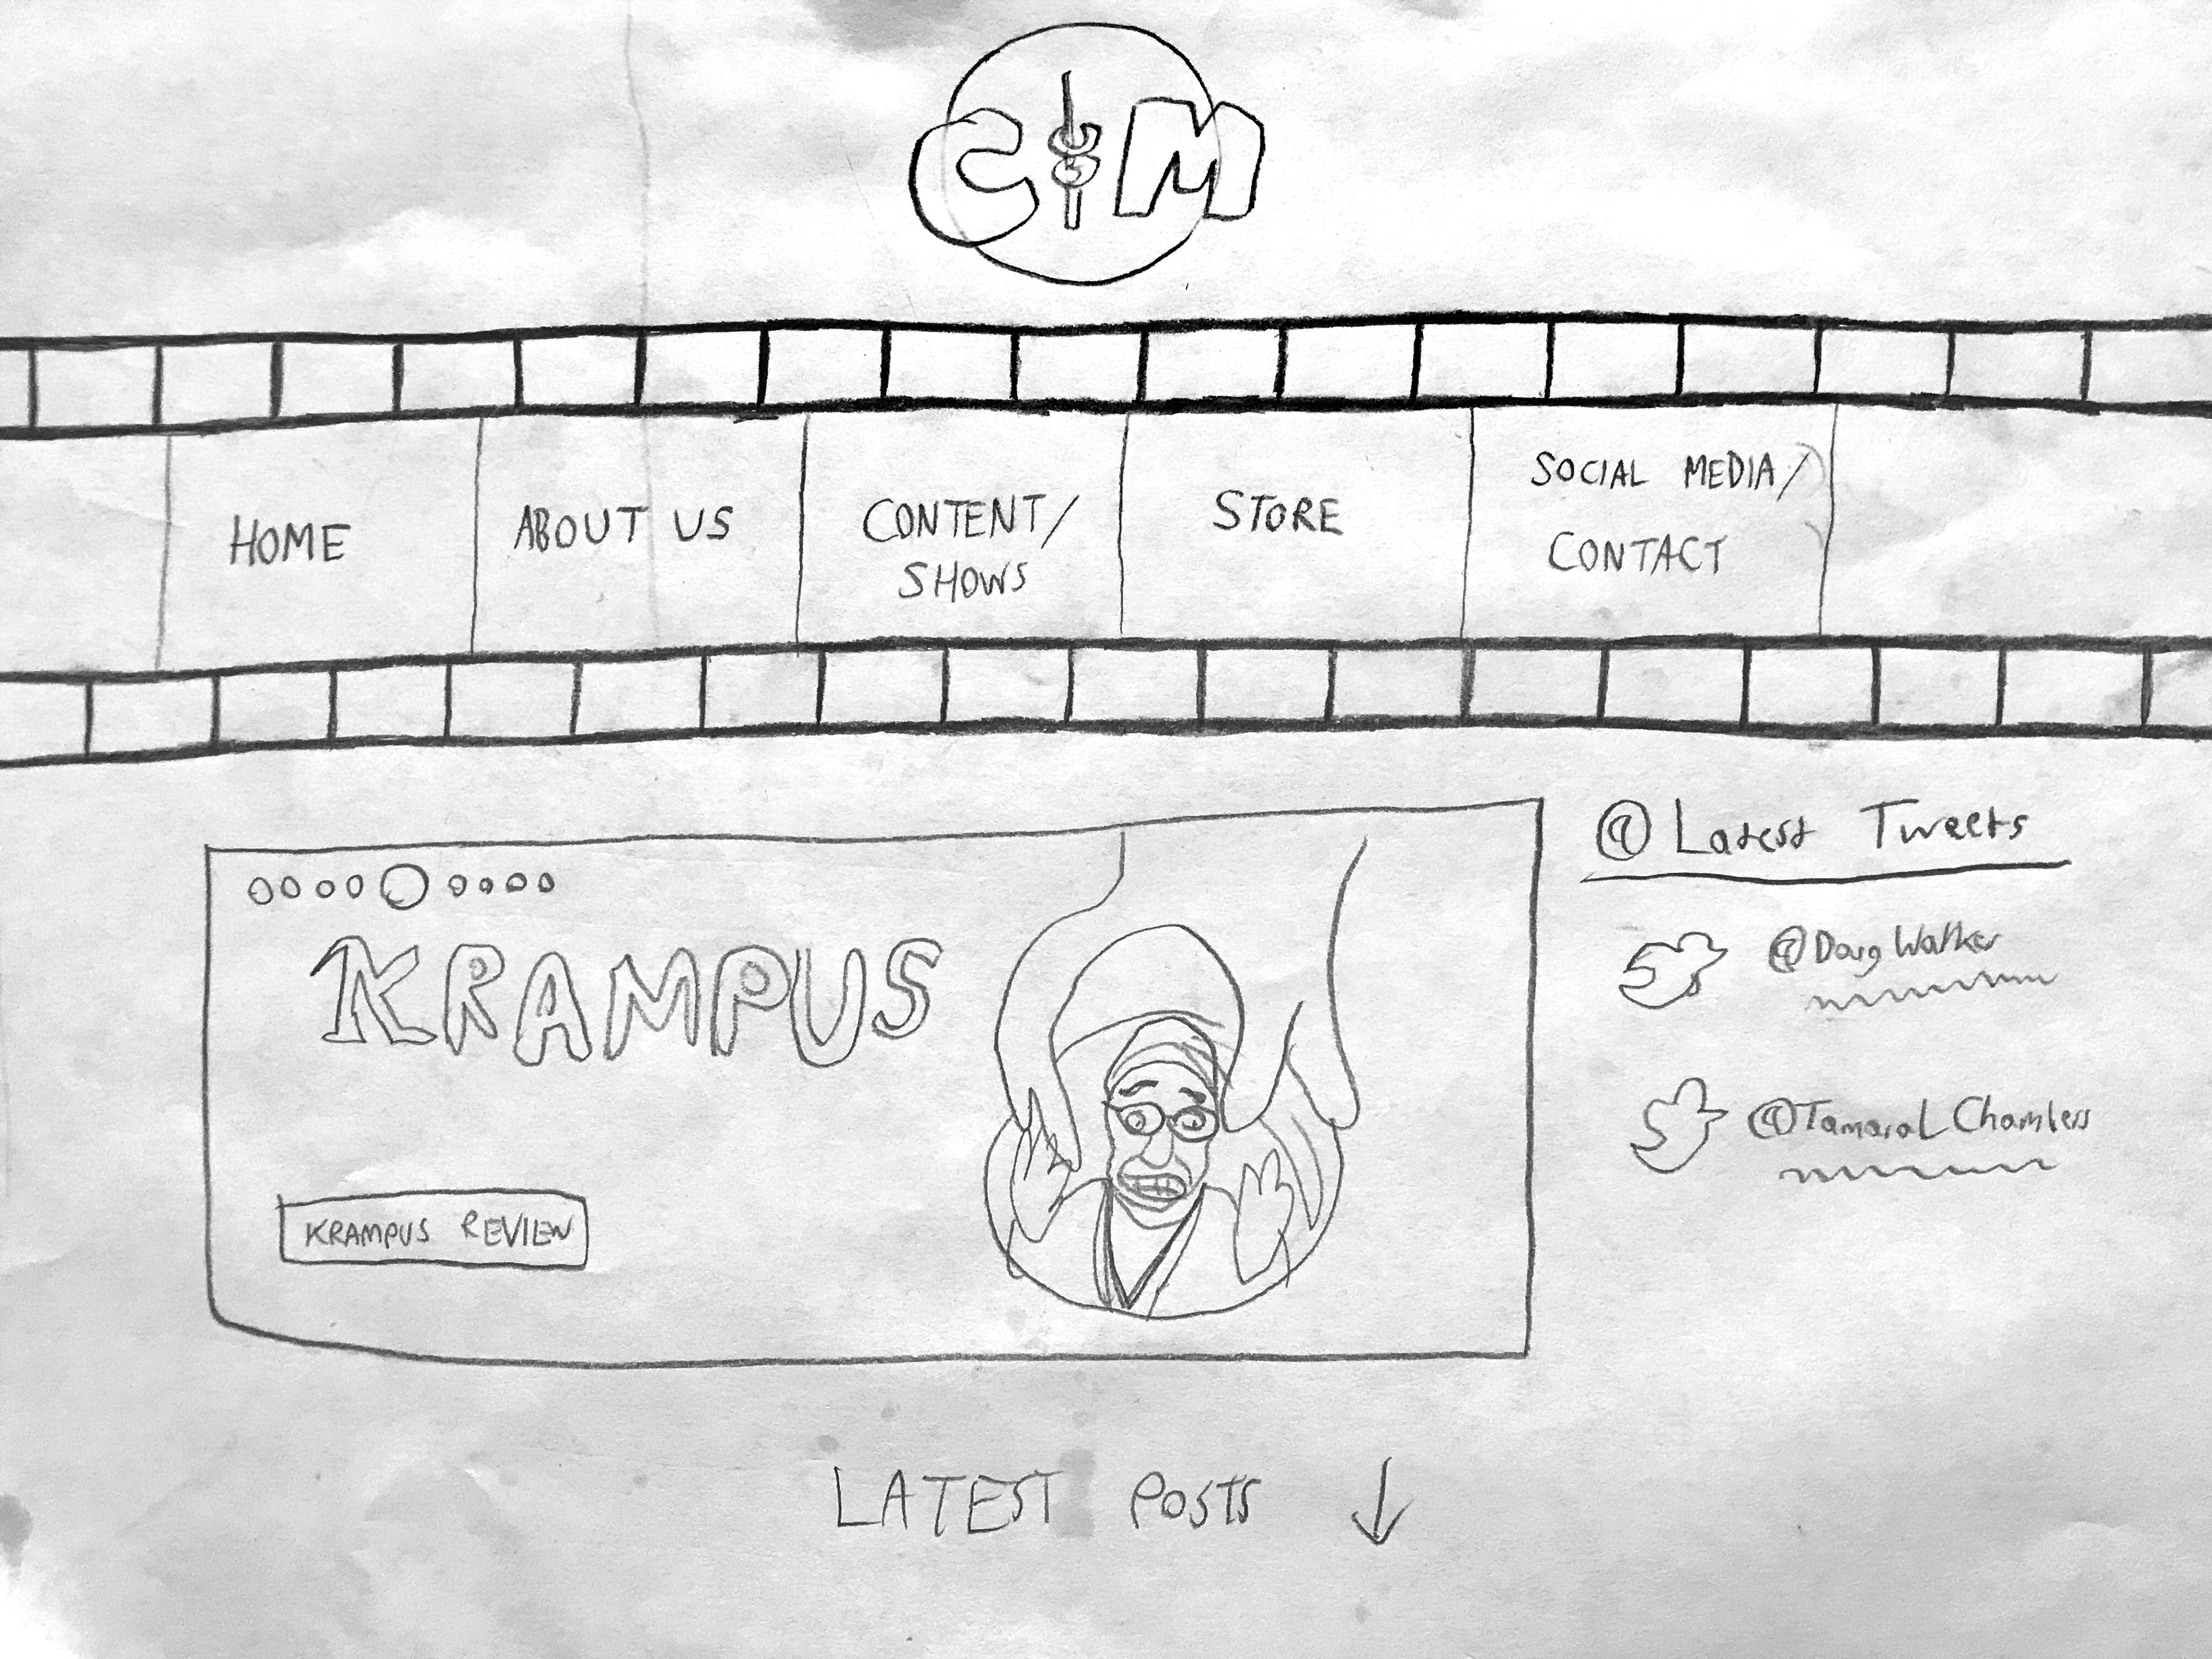 C M
HOME
ABOUT US
CONTENT/
SHOWS
STORE
SOCIAL MEDIA/
CONTACT
@ Latest Tweets
KRAMPUS
@Doug Walker
@TamaraLChambers
KRAMPUS REVIEW
LATEST POSTS ↓